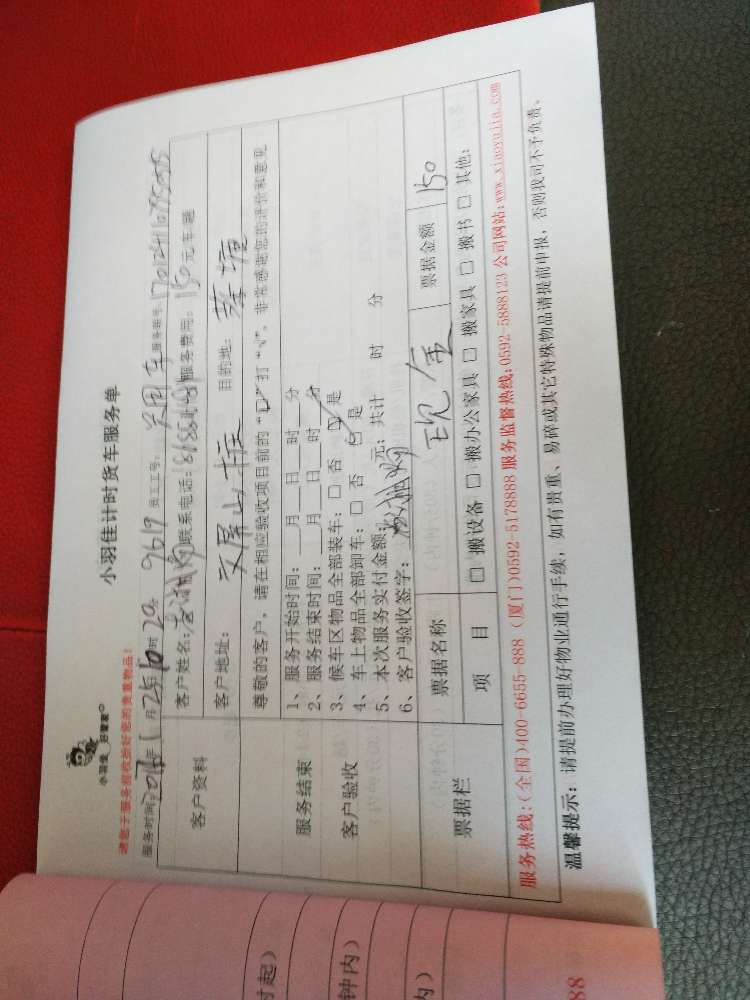 小羽佳计时货车服务单
小羽佳 好管家
请您于服务前收装好您的贵重物品!
服务时间: 年 1月25日10时20分 9619 员工工号: 服务单号: 1701241103
客户资料 客户姓名: 联系电话: 服务费用: 150元车趟
客户地址: 文屏山庄 目的地: 蔡塘
尊敬的客户,请在相应验收项目前的“□”打“√”,非常感谢您的评价和意见
服务结束
客户验收
1、服务开始时间: 月 日 时 分
2、服务结束时间: 月 日 时 分
3、候车区物品全部装车:□ 否 ☑ 是
4、车上物品全部卸车:□ 否 ☑ 是
5、本次服务实付金额: 元;共计 时 分
6、客户验收签字:
票据栏 票据名称 现金 票据金额 150
项 目 □ 搬设备 □ 搬办公家具 □ 搬家具 □ 搬书 □ 其他:
服务热线:(全国)400-6655-888 (厦门)0592-5178888 服务监督热线:0592-5888123 公司网站:www.xiaoyujia.com
温馨提示: 请提前办理好物业通行手续,如有贵重、易碎或其它特殊物品请提前申报,否则我司不予负责。
时起)
钟内)
内)
88